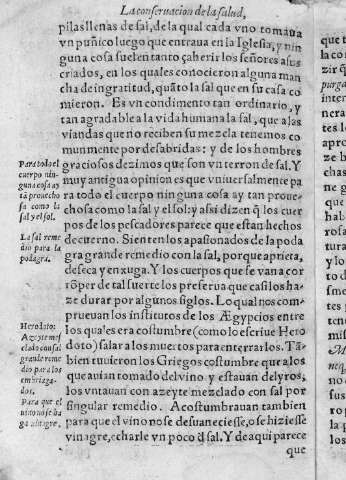 La conseruacion de la salud,
pilas llenas de sal, de la qual cada vno tomaua
vn puñico luego que entraua en la Iglesia, y nin
guna cosa suelen tanto çaherir los señores a sus
criados, en los quales conocieron alguna man
cha de ingratitud, quãto la sal que en su casa co
mieron. Es vn condimento tan ordinario, y
tan agradable a la vida humana la sal, que a las
viandas que no reciben su mezcla tenemos co
munmente por desabridas: y de los hombres
graciosos dezimos que son vn terron de sal. Y
muy antigua opinion es que vniuersalmente pa
ra todo el cuerpo ninguna cosa ay tan proue-
chosa como la sal y el sol: y assi dizen q̃ los cuer
pos de los pescadores parece que estan hechos
de cuerno. Sienten los apasionados de la poda
gra grande remedio con la sal, porque aprieta,
deseca y enxuga. Y los cuerpos que se van a cor
rõper de tal suerte los preserua que casi los ha-
ze durar por algunos siglos. Lo qual nos com-
prueuan los institutos de los Ægypcios entre
los quales era costumbre (como lo escriue Hero
doto) salar a los muertos para enterrarlos. Tã
bien tuuieron los Griegos costumbre que a los
que auian tomado del vino y estauan del yros,
los vntauan con azeyte mezclado con sal por
singular remedio. Acostumbrauan tambien
para que el vino no se desuaneciesse, o se hiziesse
vinagre, echarle vn poco d̃ sal. Y de aqui parece
que
Para todo el
cuerpo nin-
guna cosa ay
tã prouecho
sa como la
sal y el sol.
La sal reme
dio para la
podagra.
Herodoto:
Azeyte mez
clado con sal
grande reme
dio para los
embriaga-
dos.
Para que el
vino no se ha
ga vinagre.